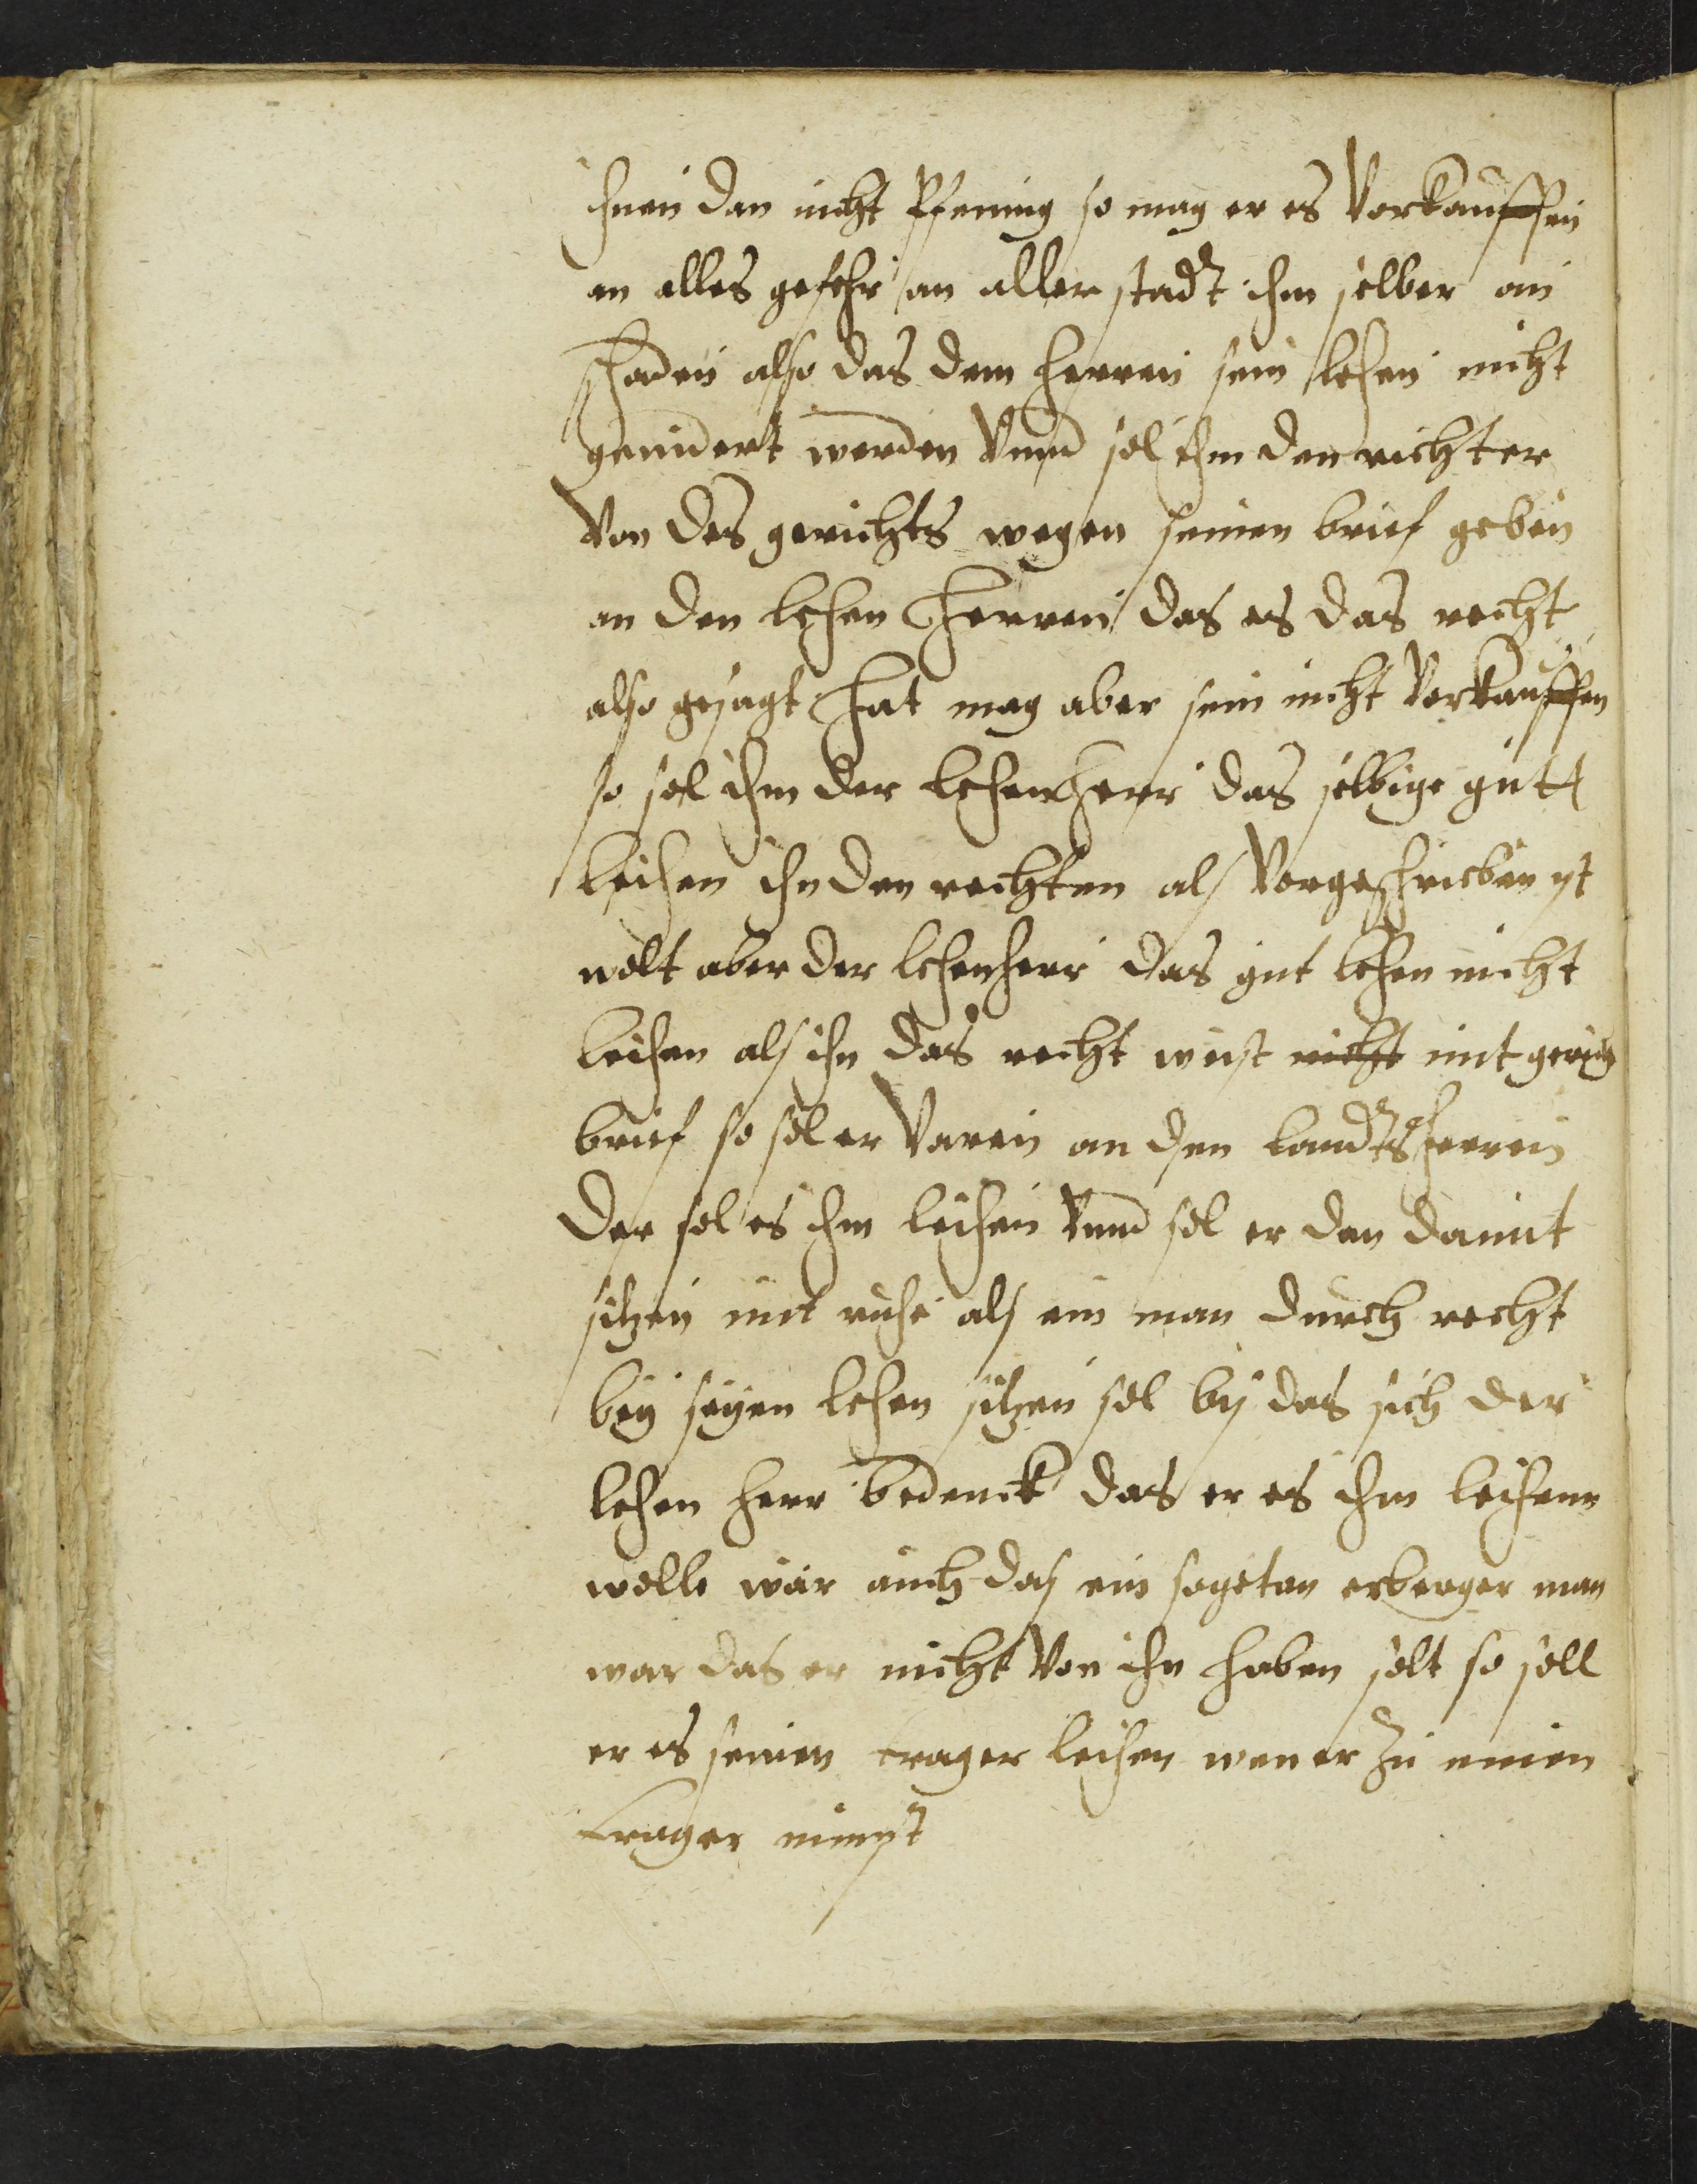 ihnen dan nicht pfennig so mag er es Verkauffen
an alles gefehr an aller stadt ihm selber ein
schaden also das dem herren sein lehen nicht
gemindert werden Vnnd sol ihm den richter
Von des gerichts wegen seinen brief geben
an den lehen herren das es das recht
also gesagt hat mag aber sein nicht Verkauffen
so sol ihm der lehenherr das selbige gutt
leihen in den rechten als Vorgeschrieben ist
wolt aber der lehenherr das gut lehen nicht
leihen als ihn das recht weist nicht mit gerichts
brief so sol er Varen an den landtsherren
der sol es ihm leihen Vnnd sol er dan damit
sitzen mit ruhe als ein man durch recht
bey seyen lehen sitzen sol bis das sich der
lehen herr bedenck das er es ihm leihenn
wolle wär auch das ein sogetan erberger man
war das er nicht Von ihn haben solt so soll
er es seinen trager leihen wen er zu einen
trager nimpt